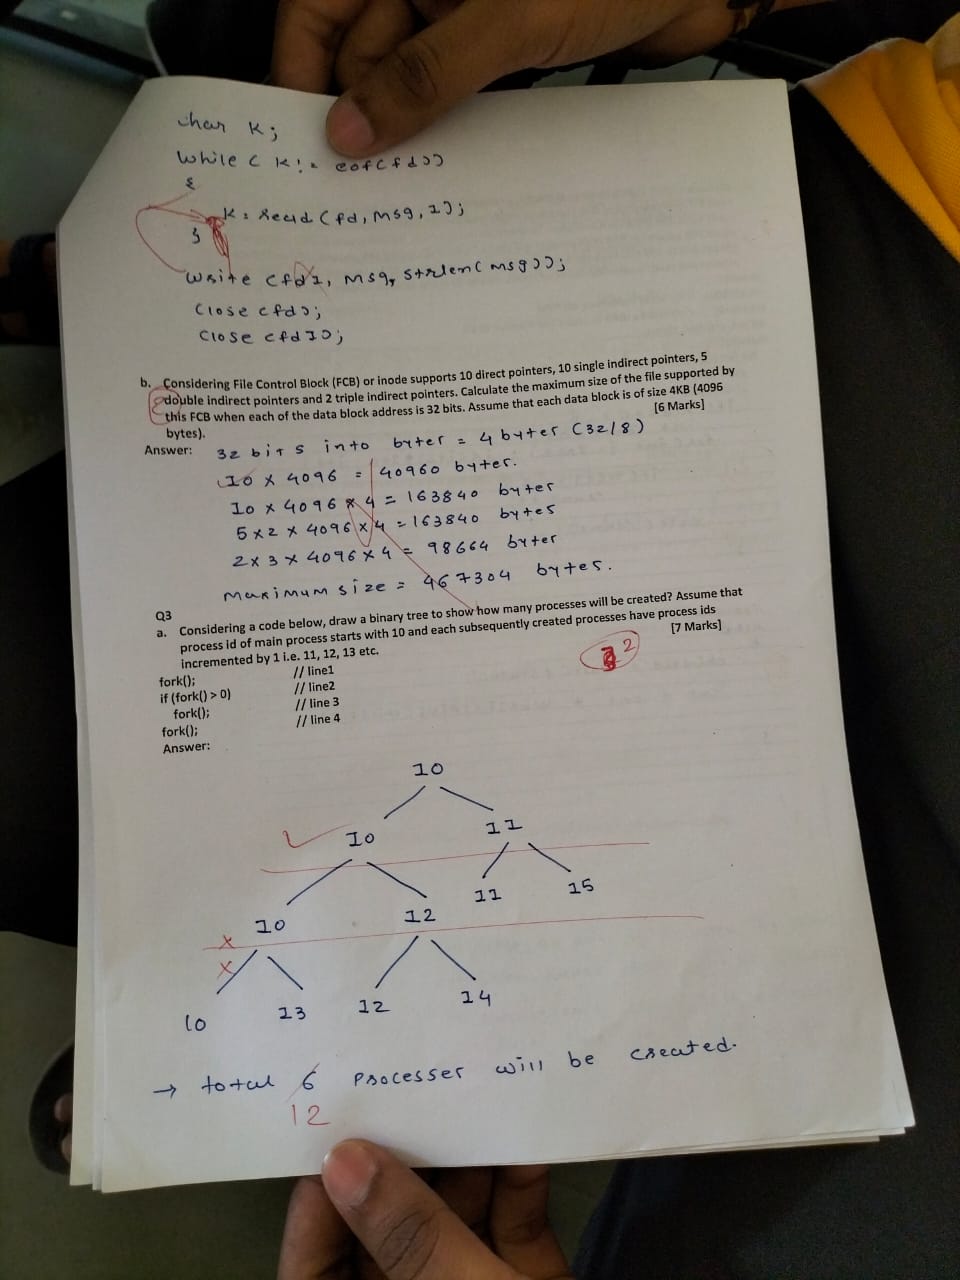 char K;
while ( K != eof(fd))
{
K = read (fd, msg, 1);
}
write (fd1, msg, strlen(msg));
close (fd);
close (fd1);
b. Considering File Control Block (FCB) or inode supports 10 direct pointers, 10 single indirect pointers, 5
double indirect pointers and 2 triple indirect pointers. Calculate the maximum size of the file supported by
this FCB when each of the data block address is 32 bits. Assume that each data block is of size 4KB (4096
bytes). [6 Marks]
Answer: 32 bits into byter = 4 byter (32/8)
10 x 4096 = 40960 byter.
10 x 4096 x 4 = 163840 byter
5 x 2 x 4096 x 4 = 163840 bytes
2 x 3 x 4096 x 4 = 98664 byter
maximum size = 467304 bytes.
Q3
a. Considering a code below, draw a binary tree to show how many processes will be created? Assume that
process id of main process starts with 10 and each subsequently created processes have process ids
incremented by 1 i.e. 11, 12, 13 etc. [7 Marks]
2
fork(); // line1
if (fork() > 0) // line2
fork(); // line 3
fork(); // line 4
Answer:
10
10 11
10 12 11 15
10 13 12 14
→ total 6 processer will be created.
12